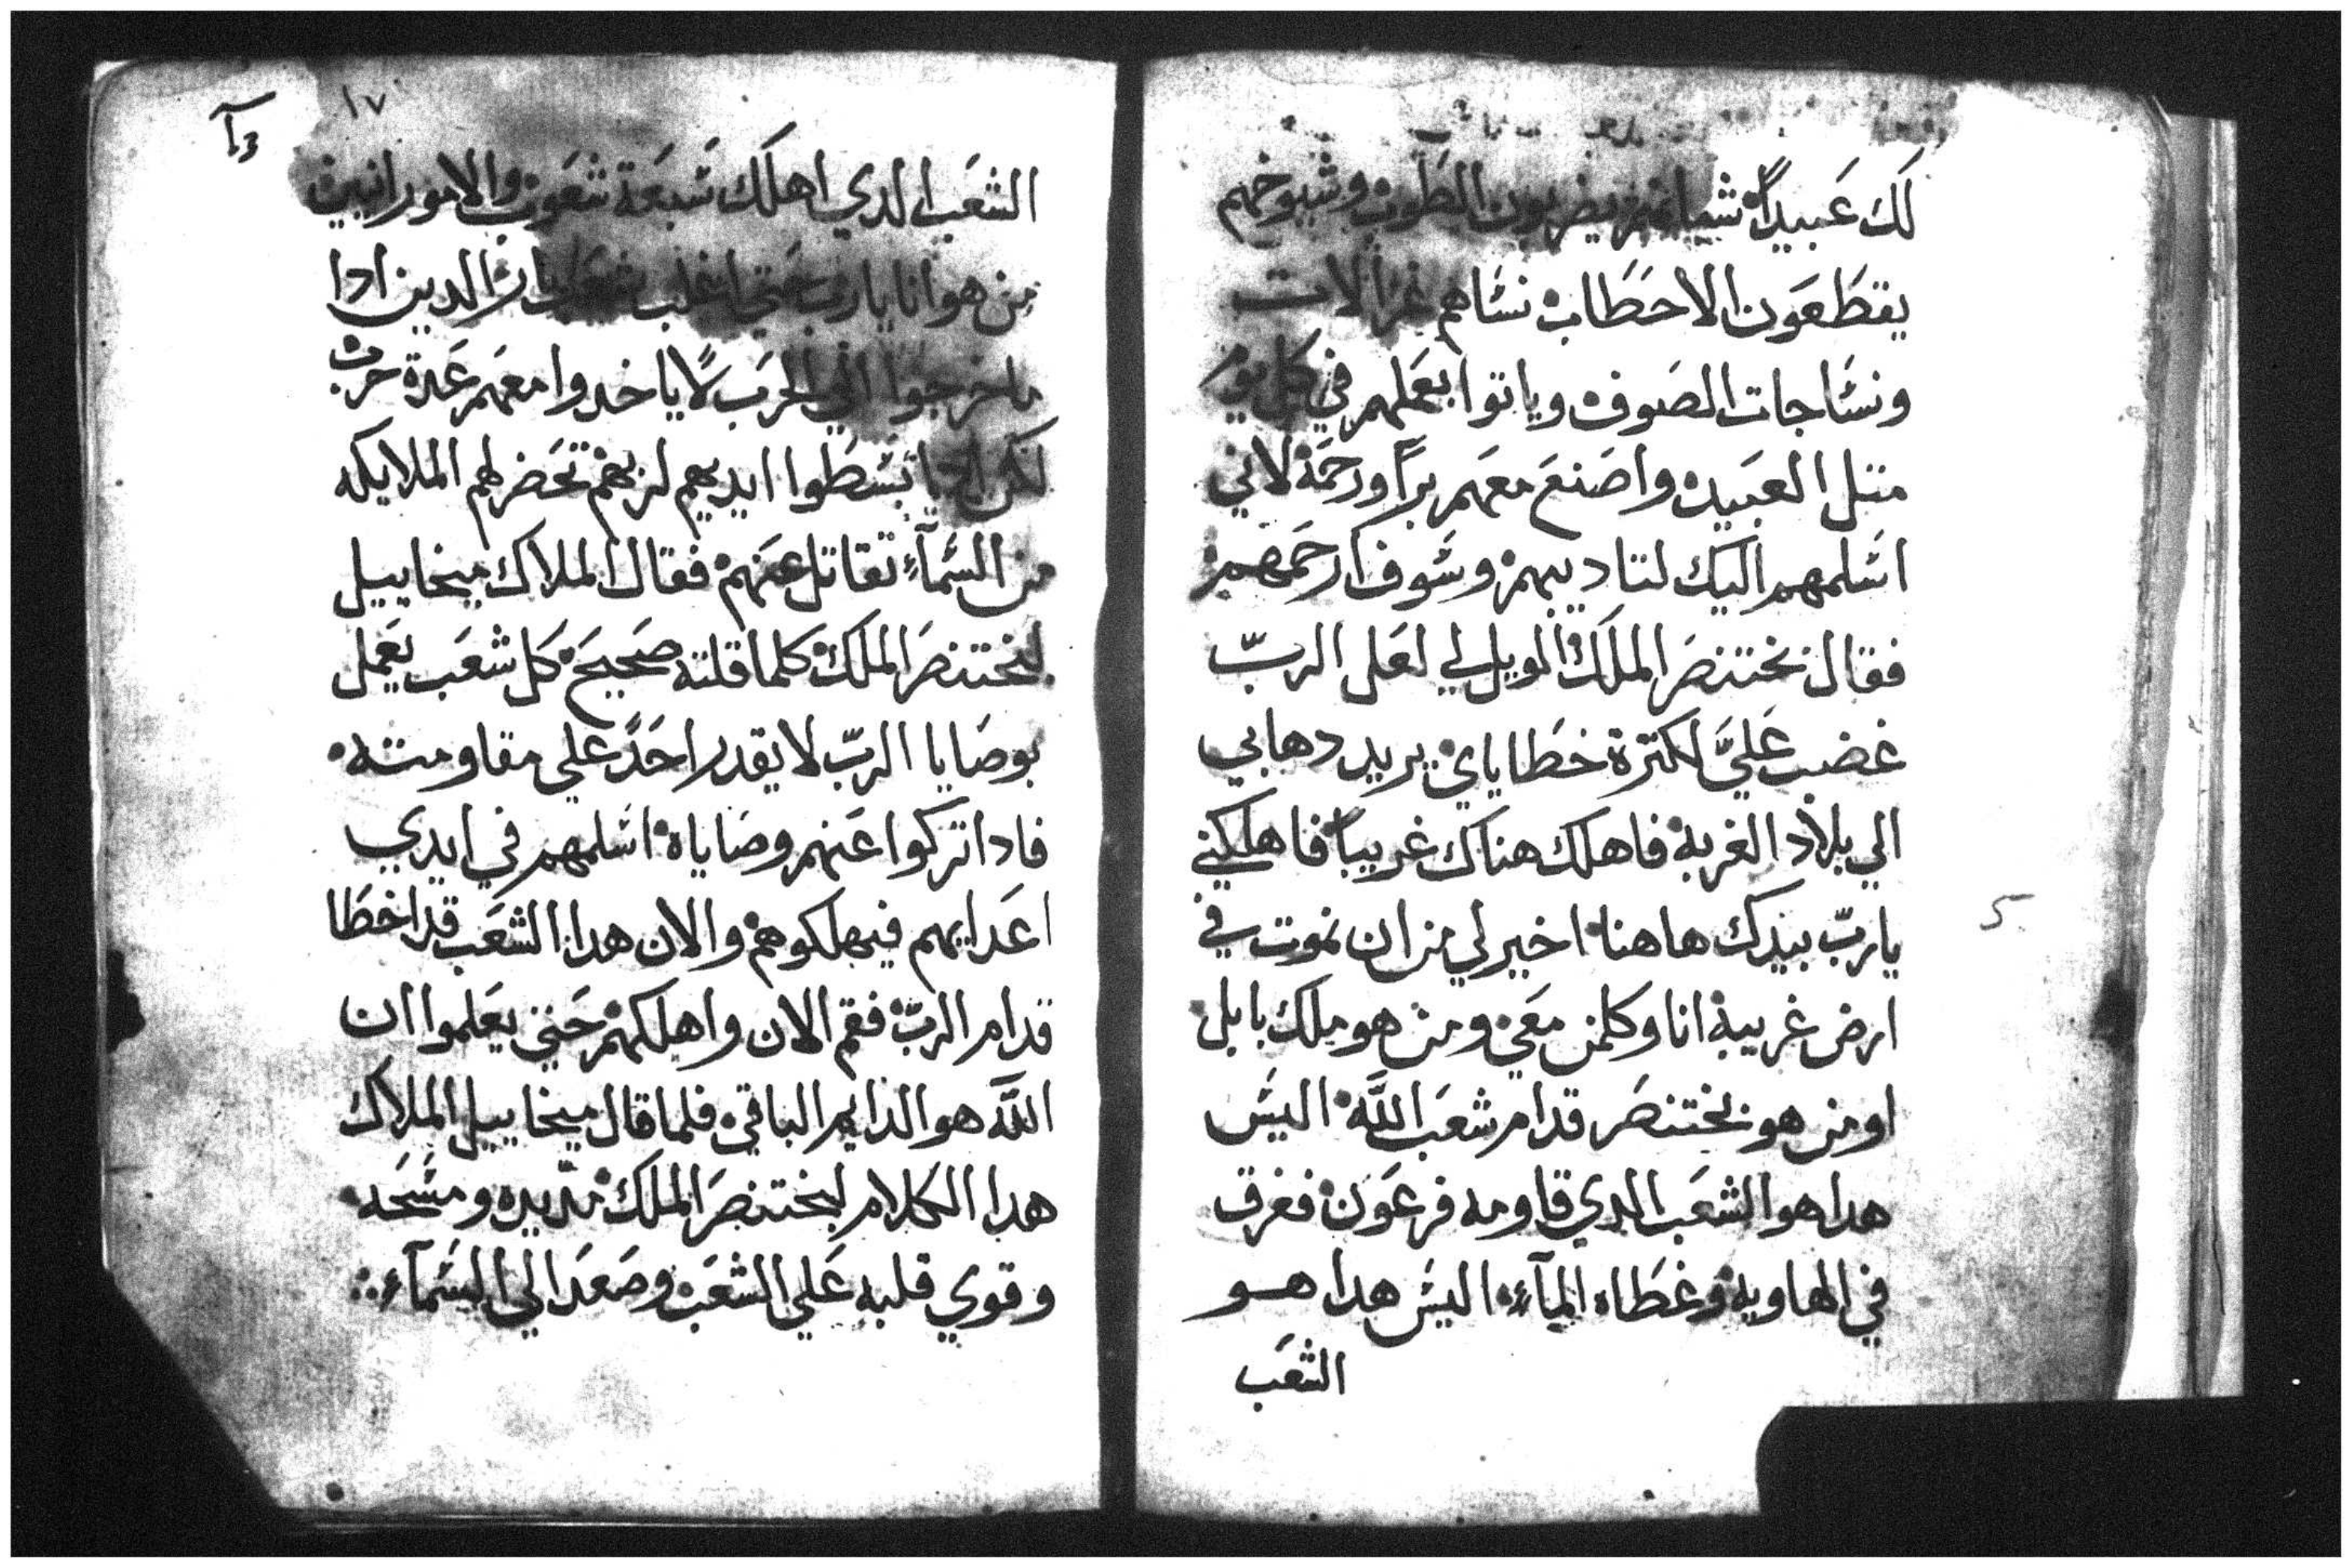 لك عَبيداً شبابهم يضربون الطوب وشيوخهم
يقطعَون الاحطَاب نسَاهم غزالات
ونسَاجات الصَوف وياتوا بعَملهم في كل يوم
متل العَبيد واصَنعَ معَهم براً ورحمَة لاني
اسَلمهم اليك لتاديبهم وسَوف ارحمَهم
فقال بختنصَر الملكَ الويل لي لعَلى الربّ
غضب عَليَّ لكترة خطَاياي يريد دهابي
الي بلاد الغربة فاهلك هناك غريباً فاهلكني
ياربّ بيدك هاهنا اخير لي من ان نموت في
ارض غريبة انا وكلمن معَي ومن هو ملك بابل
او من هو بختنصَر قدام شعَب اللَّه اليسَ
هدا هو الشعَب الدي قاومه فرعَون فغرق
في الهاويه وغطَاه المآء اليسَ هدا هو
الشعَب
١٧
الشعَب الدي اهلَك سَبعَة شعَوب والامورانيين
من هو انا يارب حتي اغلب شعَب الدين ادا
ما خرجوا الي الحرَب لا ياخدوا معَهم عَدة حرب
لكن ادا بسَطَوا ايديهم لربهم تحَضر لهم الملايكه
من السَمآء تقاتل عَنهم فقال الملاك ميخاييل
لبختنصَر الملكَ كلما قلته صَحيحَ كَل شعَب يعَمل
بوصَايا الربّ لا يقدر احَدً علي مقاومته
فادا تركوا عَنهم وصَاياه اسَلمهم في ايدي
اعَدايهم فيهلكوهم والان هدا الشعَب قد اخطَا
قدام الربّ فقم الان واهلكهم حَتي يعَلموا ان
اللَّه هو الدايم الباقي فلما قال ميخاييل الملاك
هدا الكلام لبختنصَر الملك مدّ يده ومسَحَه
وقوي قلبه عَلي الشعَب وصَعَد الي السَمآء